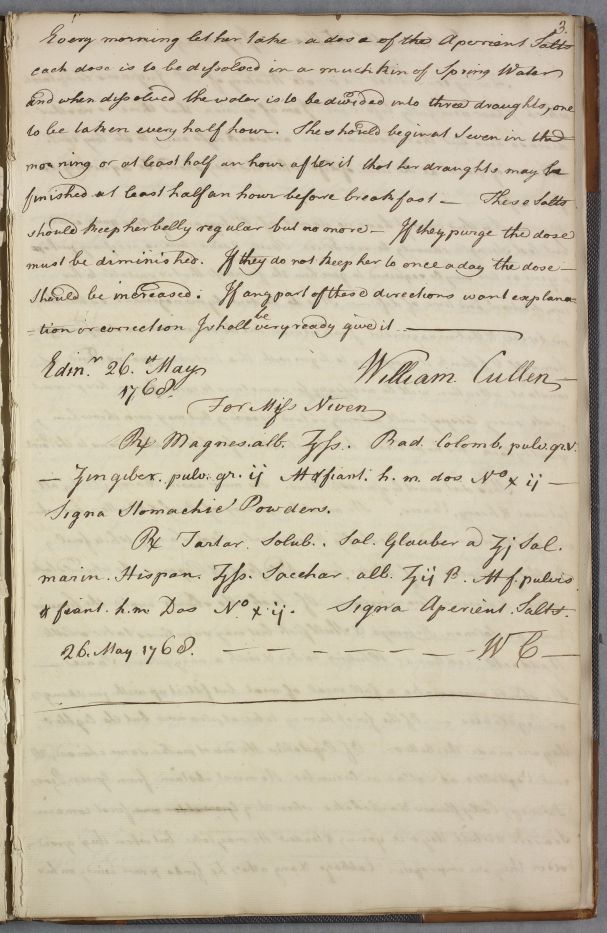 3.
Every morning let her take a dose of the Aperient Salts
each dose is to be dissolved in a mutchkin of Spring Water
and when dissolved the water is to be divided into three draughts, one
to be taken every half hour. She should begin at Seven in the
morning or at least half an hour after it that her draughts may be
finished at least half an hour before breakfast — These Salts
should keep her belly regular but no more — If they purge the dose
must be diminished. If they do not keep her to once a day the dose —
should be increased. If any part of these directions want explana-
-tion or correction I shall be very ready give it —
Edinr. 26.th May William Cullen
1768.
For Miss Niven
℞ Magnes. alb. ʒſs. Rad. Colomb. pulv. gr. v.
— Zingiber. pulv. gr. ij M & fiant. h. m. dos. No. xij —
Signa Stomachic Powders.
℞ Tartar. Solub. Sal. Glauber a ʒj Sal.
marin. Hispan. ʒſs. Sacchar. alb. ʒij ß. M f. pulvis
& fiant. h. m. Dos No. xij. Signa Aperient. Salts.
26. May 1768. — — — — — — W C —